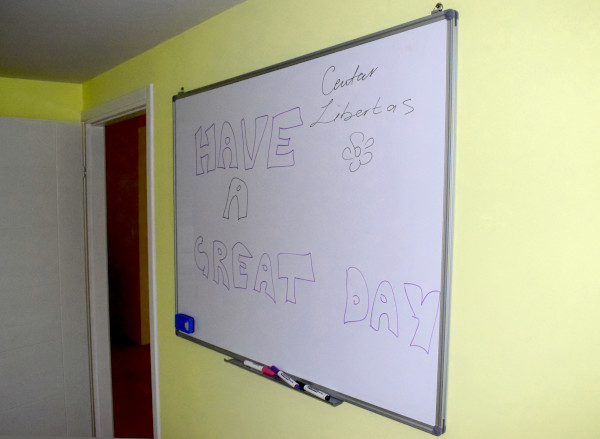 Centar
Libertas
HAVE
A
GREAT DAY